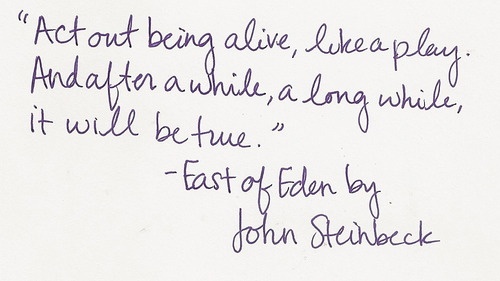 "Act out being alive, like a play.
And after a while, a long while,
it will be true."
-East of Eden by
John Steinbeck